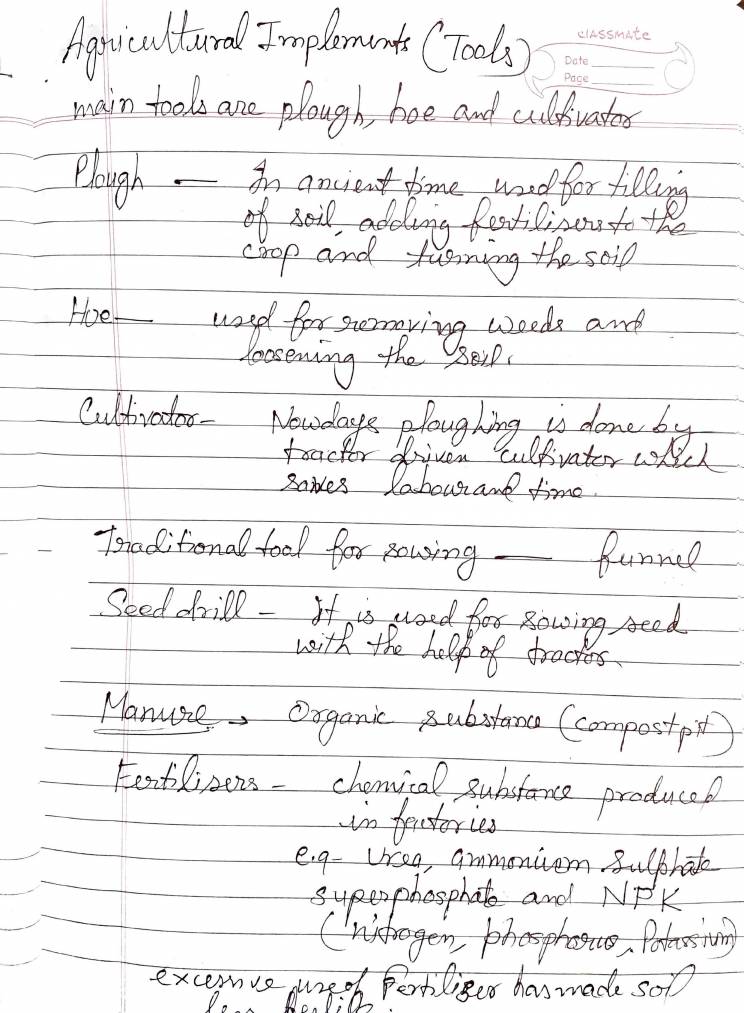 Agricultural Implements (Tools)
CLASSMATE
Date
Page
main tools are plough, hoe and cultivator
Plough — In ancient time used for tilling
of soil, adding fertilisers to the
crop and turning the soil
Hoe — used for removing weeds and
loosening the soil.
Cultivator - Nowdays ploughing is done by
tractor driven cultivator which
saves labour and time.
- Traditional tool for sowing — funnel
Seed drill - It is used for sowing seed
with the help of tractor.
Manure → Organic substance (compost pit)
Fertilisers - chemical substance produced
in factories
e.g- Urea, ammonium sulphate
superphosphate and NPK
(nitrogen, phosphorus, Potassium)
excessive use of Fertilizer has made soil
less